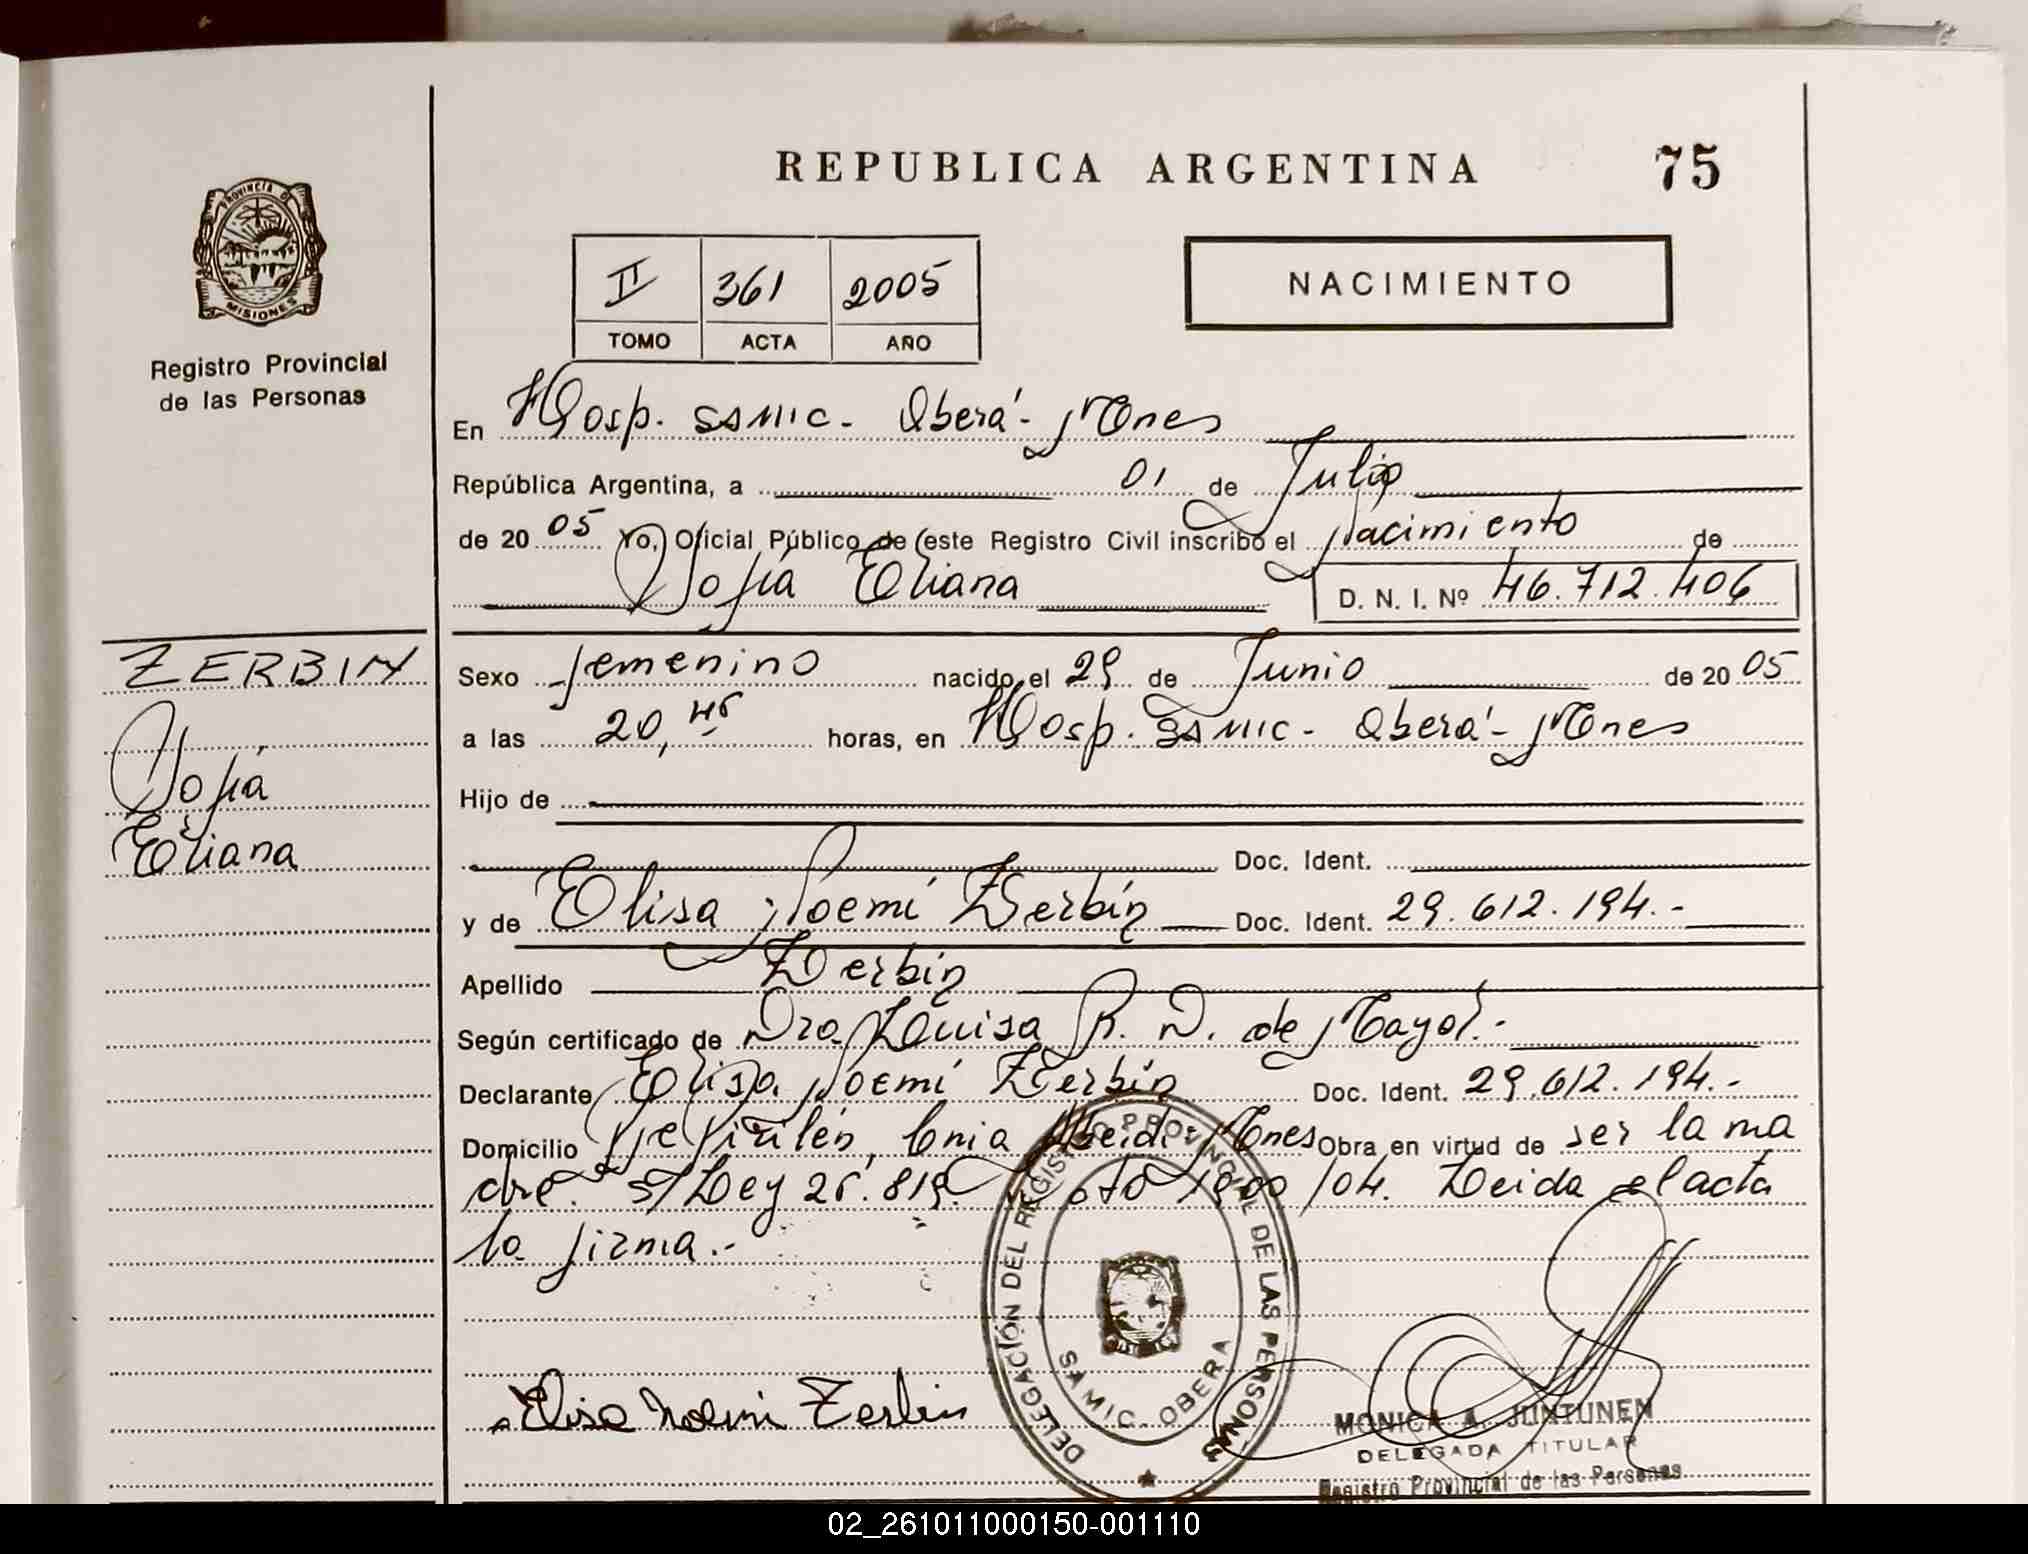 REPUBLICA ARGENTINA
75
PROVINCIA DE
MISIONES
Registro Provincial
de las Personas
II 361 2005
TOMO ACTA AÑO
NACIMIENTO
En Hosp. SAMIC - Oberá - Mnes
República Argentina, a 01 de Julio
de 2005 Yo, Oficial Público de este Registro Civil inscribo el Nacimiento de
Sofía Eliana D. N. I. Nº 46.712.406
ZERBIN
Sofía
Eliana
Sexo femenino nacido el 29 de Junio de 2005
a las 20,45 horas, en Hosp. SAMIC - Oberá - Mnes
Hijo de
Doc. Ident.
y de Elisa Noemí Zerbin Doc. Ident. 29.612.194.-
Apellido Zerbin
Según certificado de Dra. Luisa R. D. de Mayol.-
Declarante Elisa Noemí Zerbin Doc. Ident. 29.612.194.-
Domicilio Mnes Obra en virtud de ser la ma
dre. s/Ley 25.819. Dto 1900/04. Leida el acta
la firma.-
DELEGACIÓN DEL REGISTRO PROVINCIAL DE LAS PERSONAS
SAMIC. OBERA
Elisa Noemi Zerbin
MONICA A. JUNTUNEN
DELEGADA TITULAR
Registro Provincial de las Personas
02_261011000150-001110